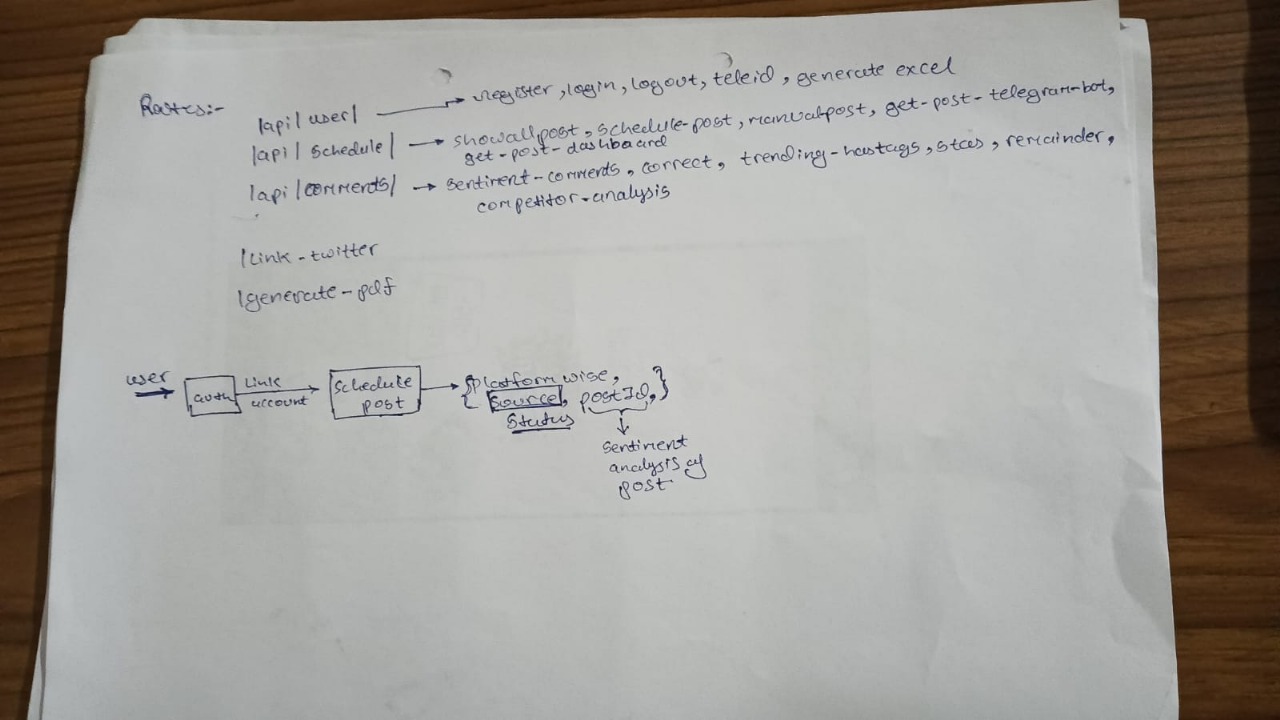 Routes:-
/api/user/ → register, login, logout, teleid, generate excel
/api/schedule/ → showallpost, schedule-post, manualpost, get-post-telegram-bot,
get-post-dashboard
/api/comments/ → sentiment-comments, correct, trending-hastags, stas, remainder,
competitor-analysis
/link-twitter
/generate-pdf
user
auth
Link
account
schedule
post
{platform wise,
source, postId,}
status
sentiment
analysis of
post